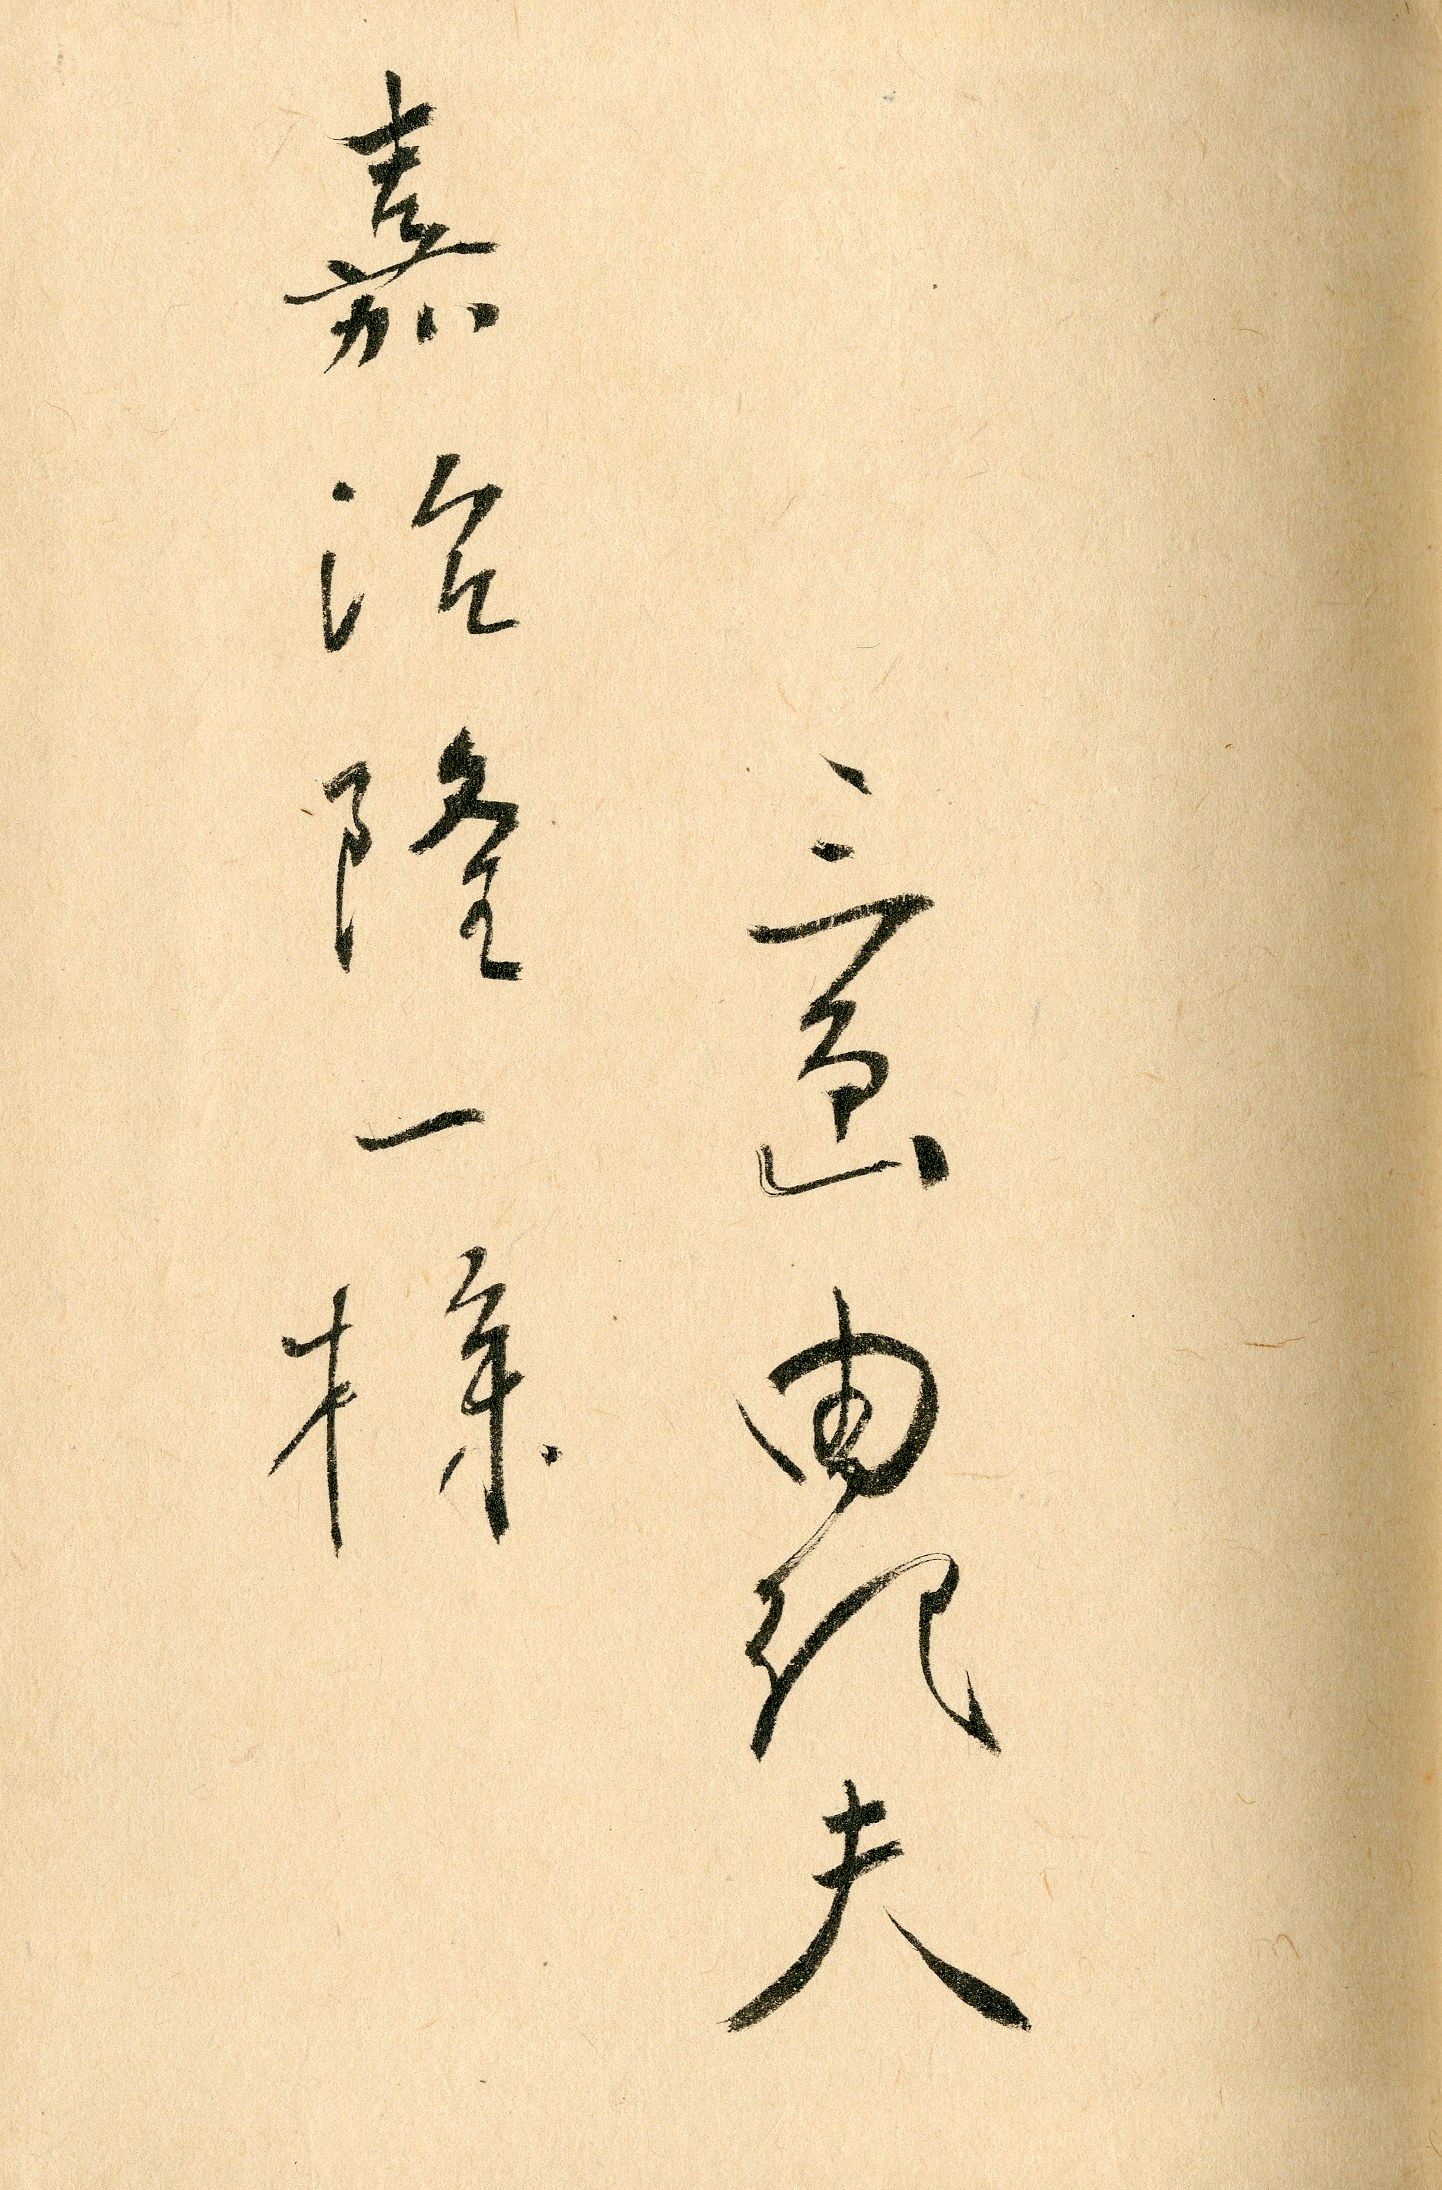 三島由紀夫
嘉治隆一様